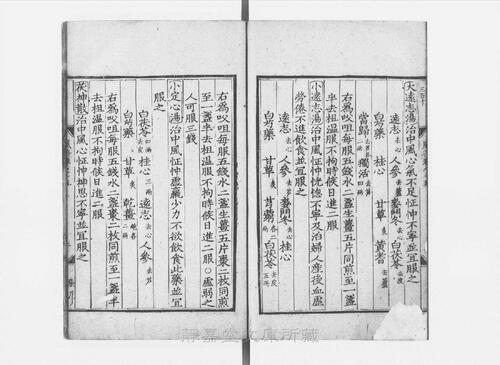 大遠志湯治中風心氣不足怔忡不寧並宜服之
遠志去心 人參去蘆 麥門冬去心 白茯苓去皮
白芍藥 桂心 甘草炙 黃耆去蘆
當歸 獨活
右爲㕮咀每服五錢水二盞生薑五片棗二枚同煎至一盞
半去柤溫服不拘時候日進二服
小遠志湯治中風怔忡恍惚不寧及治婦人產後血虛
勞倦不進飲食並宜服之
遠志去心 人參去蘆 麥門冬去心 桂心
白芍藥 甘草炙 白茯苓去皮
右爲㕮咀每服五錢水二盞生薑五片棗二枚同煎
至一盞半去柤溫服不拘時候日進二服○虛弱之
人可服三錢
小定心湯治中風怔忡虛羸少力不欲飲食此藥並宜
服之
白茯苓四兩 桂心三兩 遠志去心 人參去蘆
白芍藥 甘草炙 乾薑
右爲㕮咀每服五錢水二盞生薑五片棗二枚同煎至一盞半
去柤溫服不拘時候日進二服
茯神散治中風心怔忡神思不寧並宜服之
靜嘉堂文庫所藏